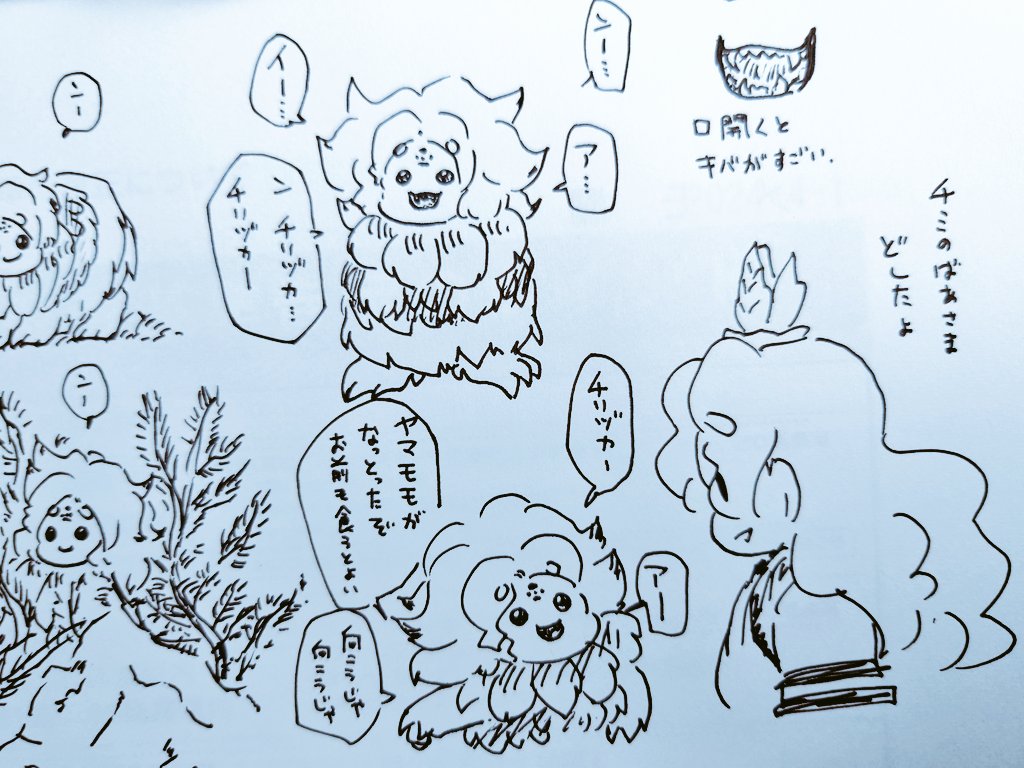 口開くと
キバがすごい.
チミのばあさま
どしたよ
ンー…
ア…
イー…
ン チリヅカ…
チリヅカー
ンー
チリヅカー
ヤマモモが
なっとったぞ
お前も食うとよい
アー
向こうじゃ
向こうじゃ
ンー